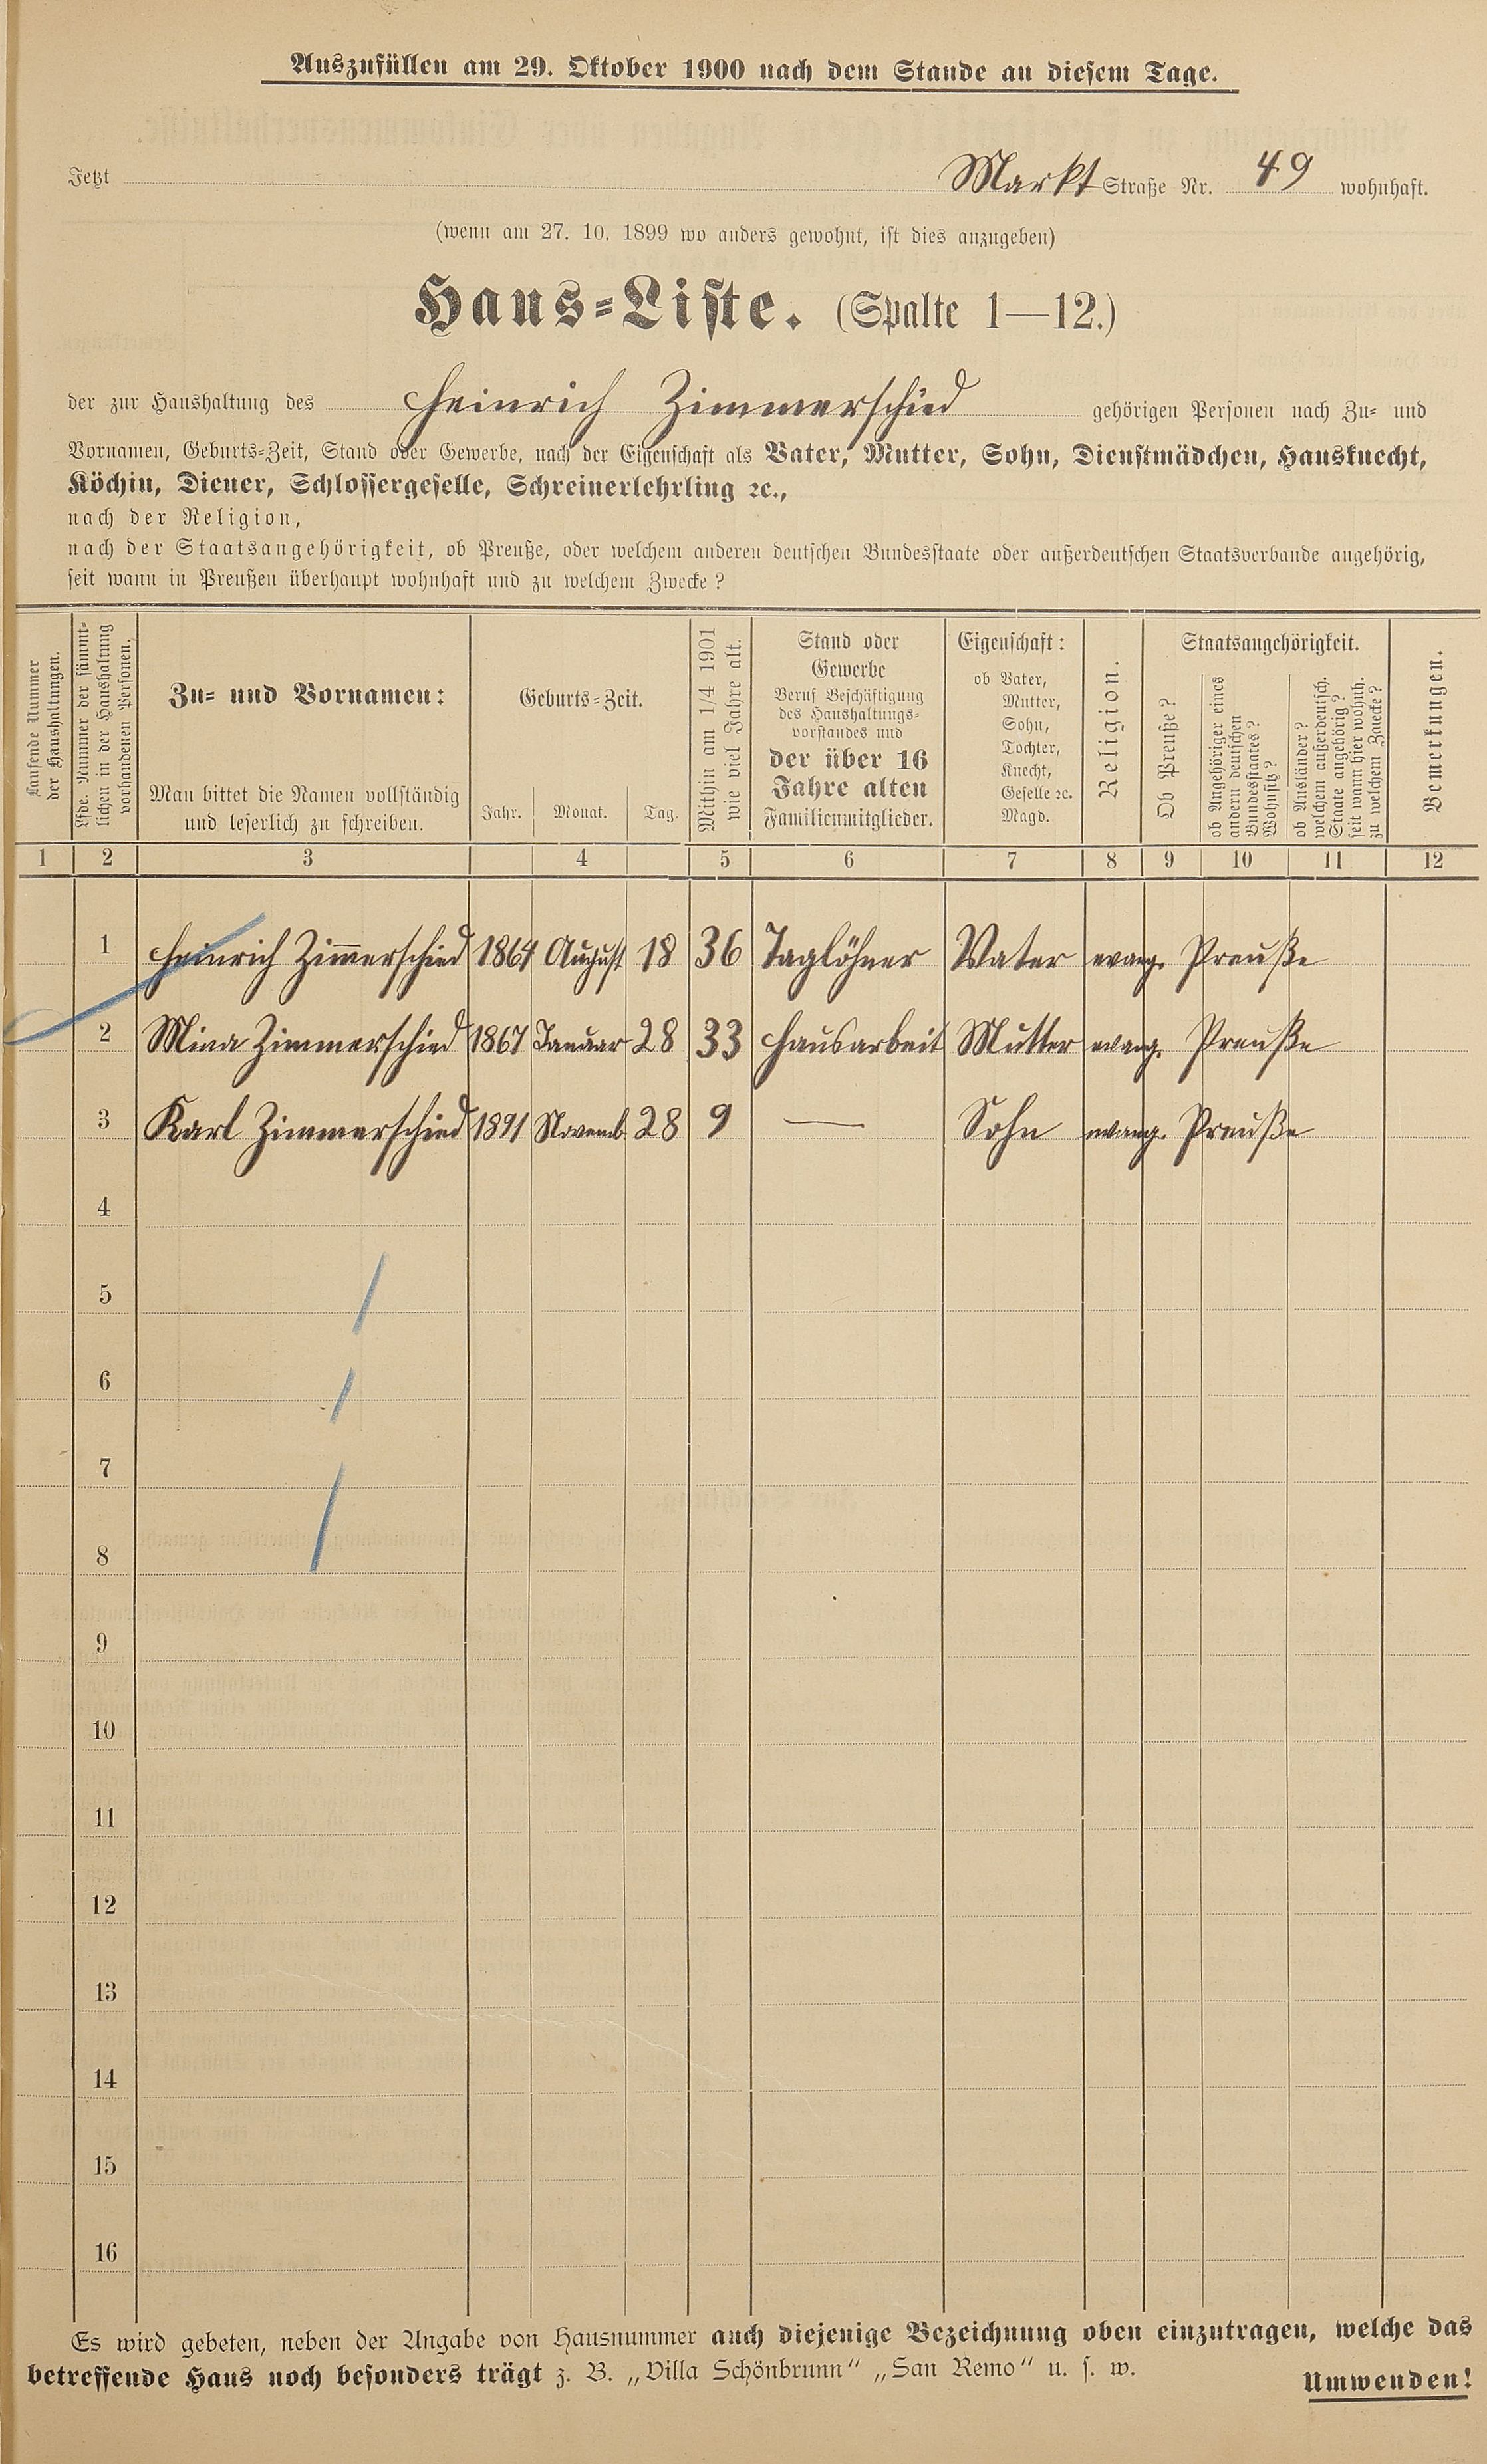 Auszufüllen am 29. Oktober 1900 nach dem Stande an diesem Tage.
Jetzt Markt Straße Nr. 49 wohnhaft.
(wenn am 27. 10. 1899 wo anders gewohnt, ist dies anzugeben)
Haus-Liste. (Spalte 1—12.)
der zur Haushaltung des Heinrich Zimmerschied gehörigen Personen nach Zu- und
Vornamen, Geburts-Zeit, Stand oder Gewerbe, nach der Eigenschaft als Vater, Mutter, Sohn, Dienstmädchen, Hausknecht,
Köchin, Diener, Schlossergeselle, Schreinerlehrling ꝛc.,
nach der Religion,
nach der Staatsangehörigkeit, ob Preuße, oder welchem anderen deutschen Bundesstaate oder außerdeutschen Staatsverbande angehörig,
seit wann in Preußen überhaupt wohnhaft und zu welchem Zwecke?
Laufende Nummer
der Haushaltungen.
Lfde. Nummer der sämmt-
lichen in der Haushaltung
vorhandenen Personen.
Zu- und Vornamen:
Man bittet die Namen vollständig
und leserlich zu schreiben.
Geburts-Zeit.
Jahr. Monat. Tag.
Mithin am 1/4 1901
wie viel Jahre alt.
Stand oder
Gewerbe
Beruf Beschäftigung
des Haushaltungs-
vorstandes und
der über 16
Jahre alten
Familienmitglieder.
Eigenschaft:
ob Vater,
Mutter,
Sohn,
Tochter,
Knecht,
Geselle ꝛc.
Magd.
Religion.
Staatsangehörigkeit.
Ob Preuße?
ob Angehöriger eines
andern deutschen
Bundesstaates?
Wohnsitz?
ob Ausländer?
welchem außerdeutsch.
Staate angehörig?
seit wann hier wohnh.
zu welchem Zwecke?
Bemerkungen.
1 2 3 4 5 6 7 8 9 10 11 12
1 Heinrich Zim̅erschied 1864 August 18 36 Taglöhner Vater evang. Preuße
2 Mina Zimmerschied 1867 Januar 28 33 Hausarbeit Mutter evang. Preuße
3 Karl Zimmerschied 1891 Novemb. 28 9 — Sohn evang. Preuße
4
5
6
7
8
9
10
11
12
13
14
15
16
Es wird gebeten, neben der Angabe von Hausnummer auch diejenige Bezeichnung oben einzutragen, welche das
betreffende Haus noch besonders trägt z. B. „Villa Schönbrunn" „San Remo" u. s. w.
Umwenden!